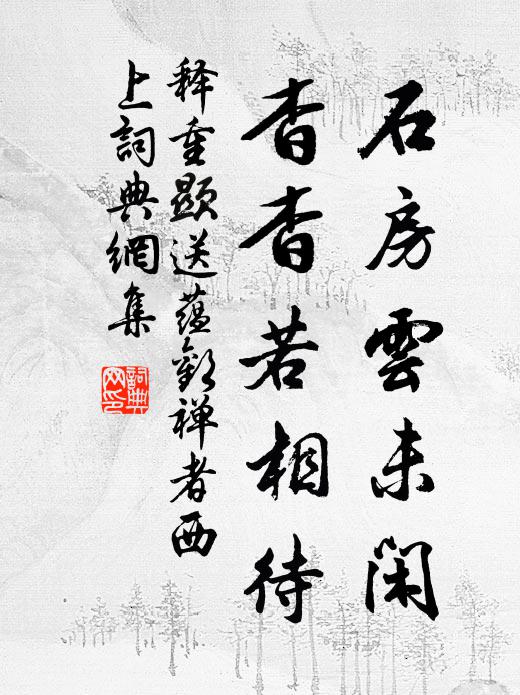 石房雲未閑
杳杳若相待
释重顯送蕴歡禅者西
上詞典網集
詞典
网印